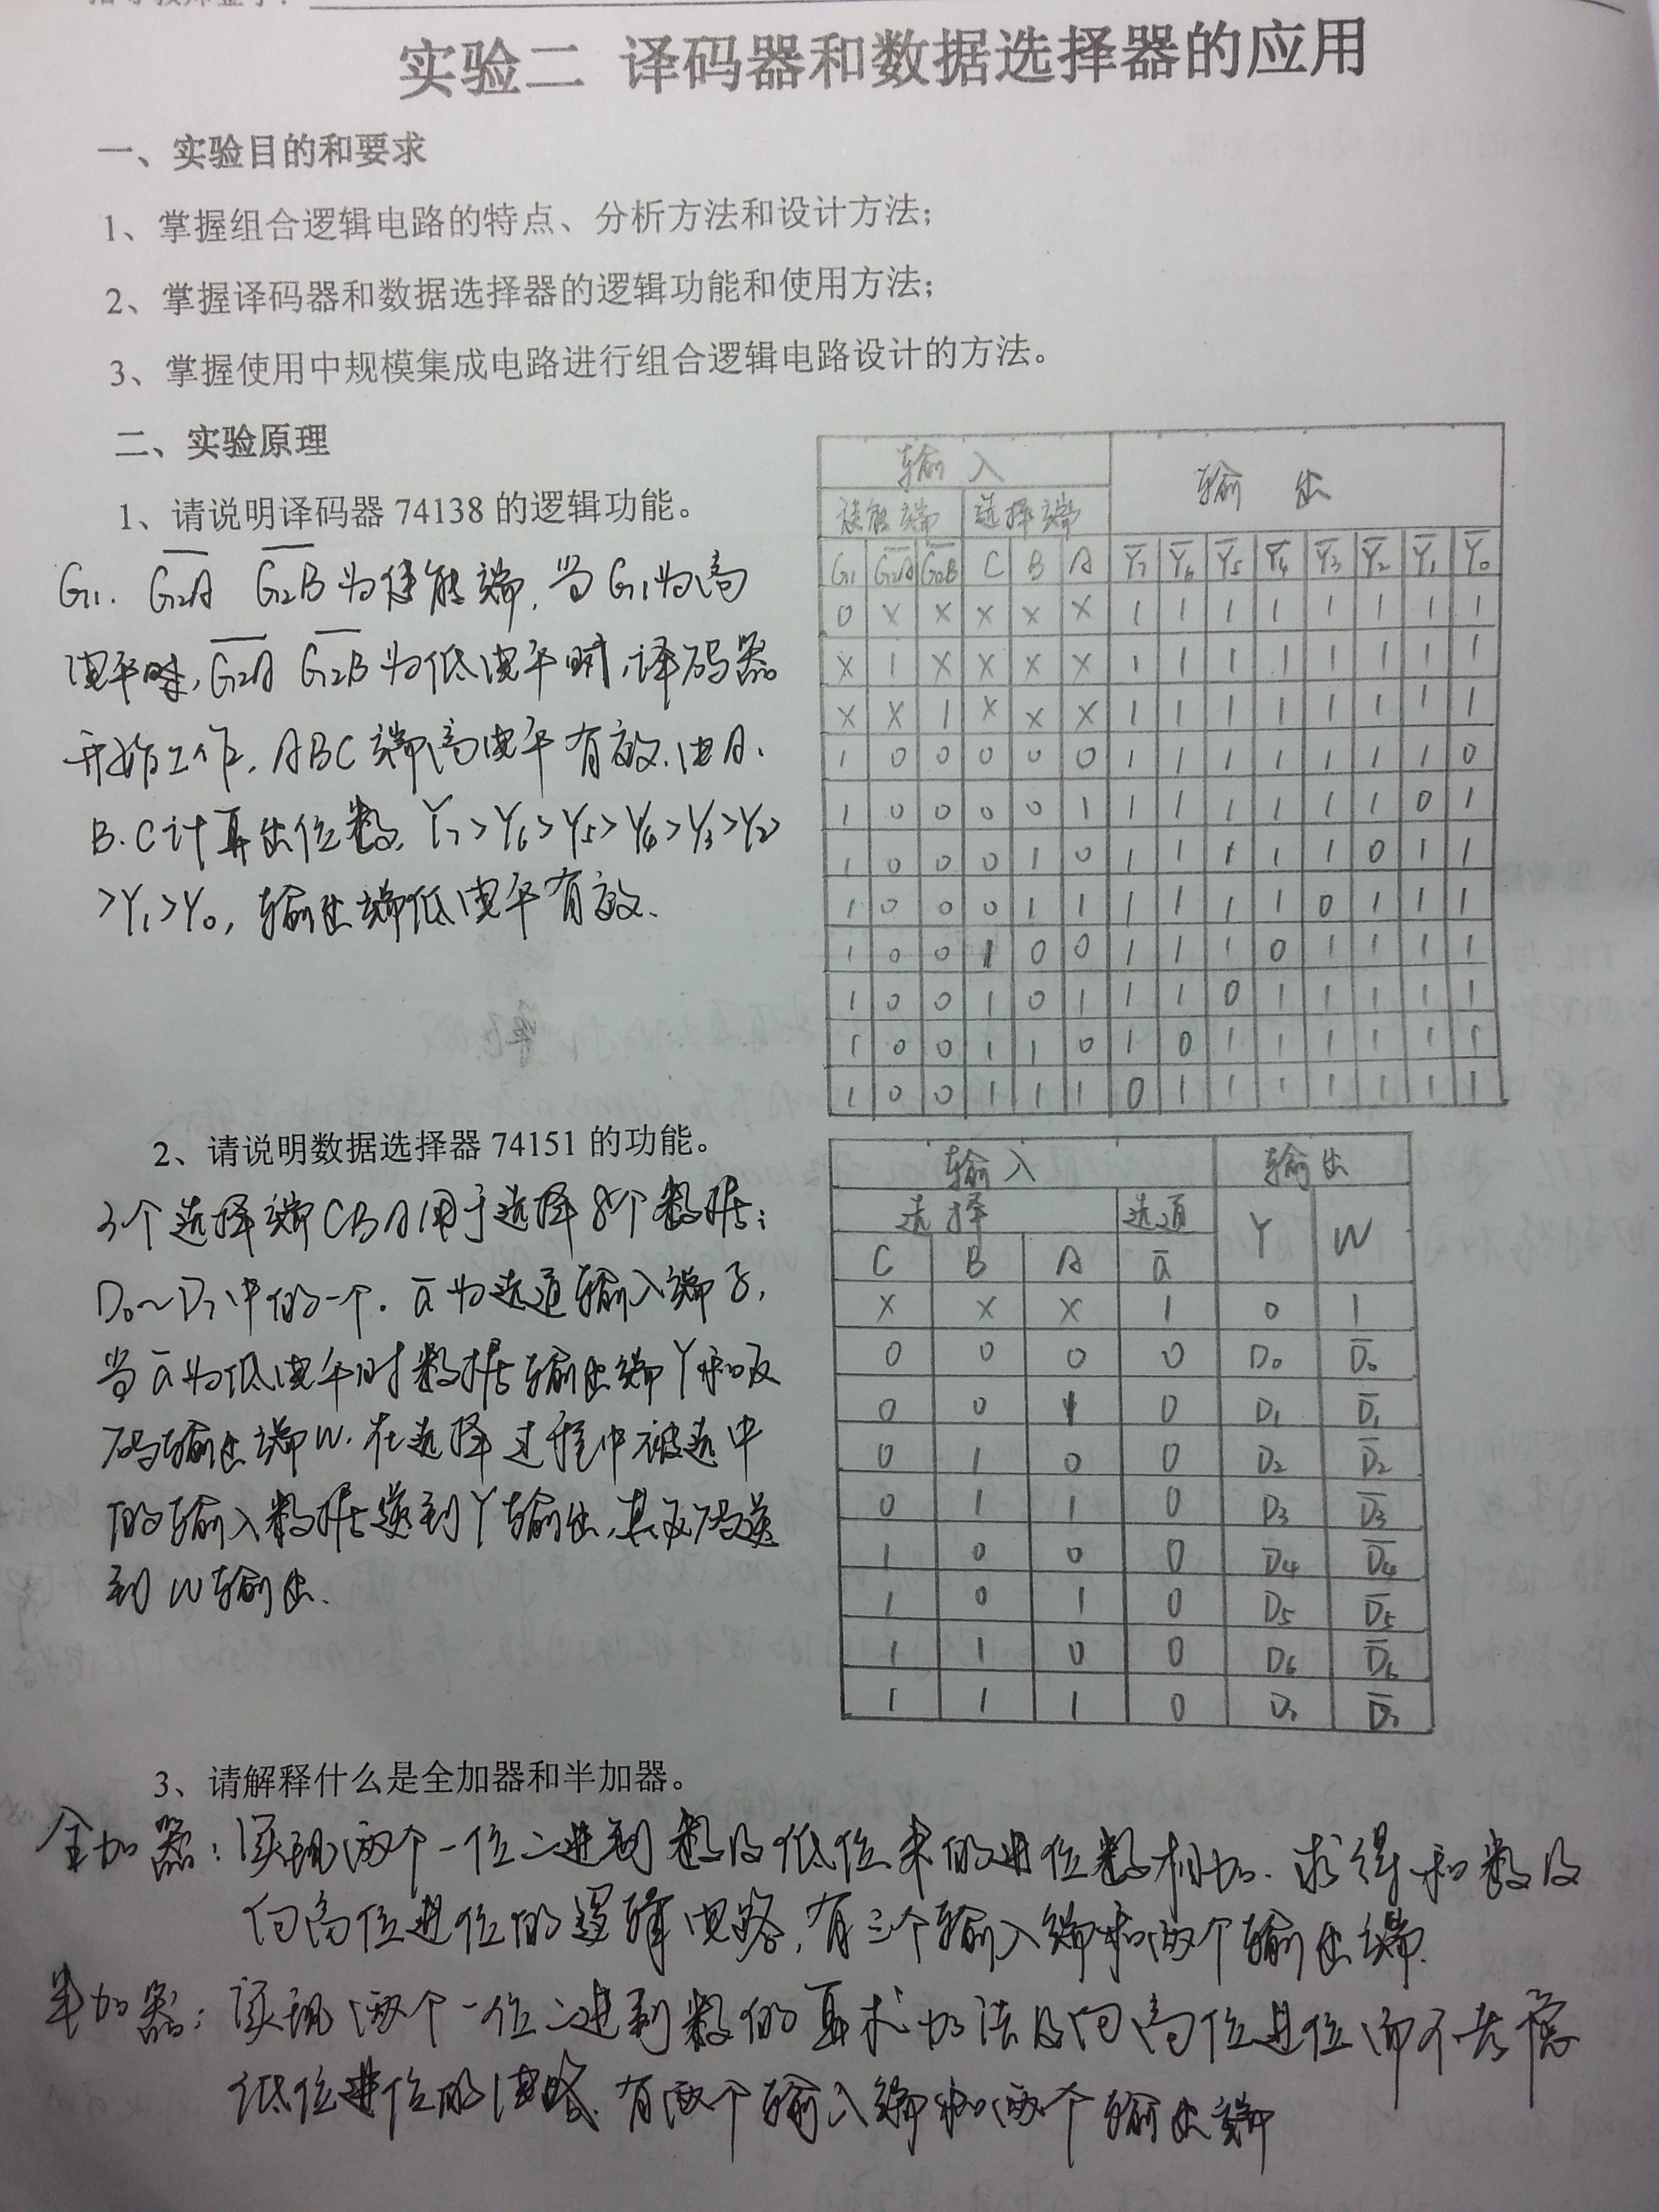 实验二 译码器和数据选择器的应用
一、实验目的和要求
1、掌握组合逻辑电路的特点、分析方法和设计方法；
2、掌握译码器和数据选择器的逻辑功能和使用方法；
3、掌握使用中规模集成电路进行组合逻辑电路设计的方法。
二、实验原理
1、请说明译码器 74138 的逻辑功能。
G₁. G̅₂̅A̅ G̅₂̅B̅ 为使能端, 当G₁为高
电平时, G̅₂̅A̅ G̅₂̅B̅ 为低电平时, 译码器
开始工作. ABC 端高电平有效. 由A.
B.C计算出位数. Y₇>Y₆>Y₅>Y₄>Y₃>Y₂>
>Y₁>Y₀, 输出端低电平有效.
输入 输出
使能端 选择端
G₁ G̅₂̅A̅ G̅₂̅B̅ C B A Y̅₇ Y̅₆ Y̅₅ Y̅₄ Y̅₃ Y̅₂ Y̅₁ Y̅₀
0 × × × × × 1 1 1 1 1 1 1 1
× 1 × × × × 1 1 1 1 1 1 1 1
× × 1 × × × 1 1 1 1 1 1 1 1
1 0 0 0 0 0 1 1 1 1 1 1 1 0
1 0 0 0 0 1 1 1 1 1 1 1 0 1
1 0 0 0 1 0 1 1 1 1 1 0 1 1
1 0 0 0 1 1 1 1 1 1 0 1 1 1
1 0 0 1 0 0 1 1 1 0 1 1 1 1
1 0 0 1 0 1 1 1 0 1 1 1 1 1
1 0 0 1 1 0 1 0 1 1 1 1 1 1
1 0 0 1 1 1 0 1 1 1 1 1 1 1
2、请说明数据选择器 74151 的功能。
3个选择端CBA用于选择8个数据;
D₀~D₇中的一个. a̅为选通输入端子,
当a̅为低电平时数据输出端Y和反
码输出端W. 在选择过程中被选中
的输入数据送到Y输出, 其反码送
到W输出.
输入 输出
选择 选通 Y W
C B A a̅
× × × 1 0 1
0 0 0 0 D₀ D̅₀
0 0 1 0 D₁ D̅₁
0 1 0 0 D₂ D̅₂
0 1 1 0 D₃ D̅₃
1 0 0 0 D₄ D̅₄
1 0 1 0 D₅ D̅₅
1 1 0 0 D₆ D̅₆
1 1 1 0 D₇ D̅₇
3、请解释什么是全加器和半加器。
全加器: 实现两个一位二进制数及低位来的进位数相加. 求得和数及
向高位进位的逻辑电路, 有三个输入端和两个输出端.
半加器: 实现两个一位二进制数的算术加法及向高位进位而不考虑
低位进位的电路. 有两个输入端和两个输出端